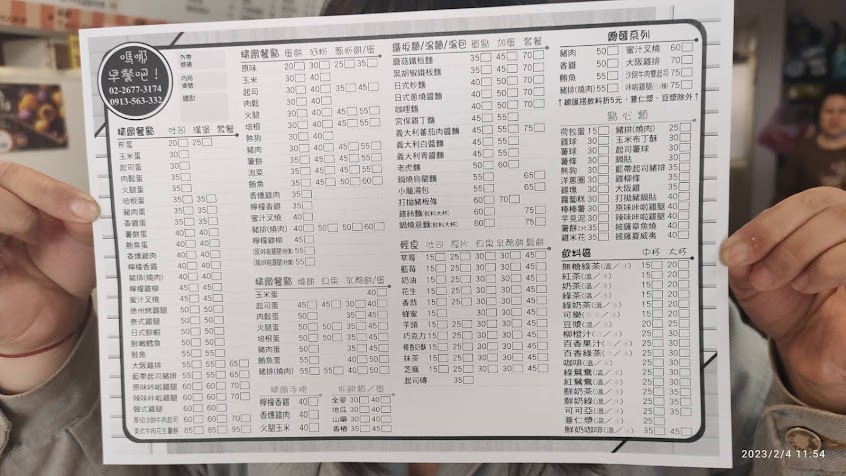 嗎哪
早餐吧！
02-2677-3174
0913-563-332
外帶
內用
總計
精緻餐點 吐司 漢堡 套餐
煎蛋 20 25
玉米蛋 30
起司蛋 30
肉鬆蛋 35
火腿蛋 35
培根蛋 35 35
豬肉蛋 35 35
香雞蛋 35 35
薯餅蛋 40 40
鮪魚蛋 40 40
香煙雞肉 40 40
檸檬香雞 40 40
豬排(燒肉) 40 40
檸檬雞柳 45 45
蜜汁叉燒 45 45
德州烤雞腿 50 50
泰式雞腿 50 50
日式鮮蝦 50 50
鮮嫩鱈魚 50 50
鮭魚 55 55
大阪雞排 55 55 65
藍帶起司豬排 55 55 65
原味咔啦雞腿 60 60 70
辣味咔啦雞腿 60 60 70
韓式雞腿 60 60
原切沙朗牛肉起司 60 60 70
美式牛肉花生薯餅 85 85 95
精緻餐點 蛋餅 河粉 蔥抓餅/蛋
原味 20 30 25 35
玉米 30 40
起司 30 40
肉鬆 30 40
火腿 30 40 45 55
培根 30 40 45 55
熱狗 30 40
豬肉 35 45 45 55
薯餅 35 45 45 55
泡菜 35 45 45 55
鮪魚 35 45 50 60
香煙雞肉 35
檸檬香雞 40
蜜汁叉燒 40
豬排(燒肉) 40 50 50 60
檸檬雞柳 45
精緻餐點 燒餅 貝果 乳酪餅/蛋
玉米蛋 40
起司蛋 45 45 30 40
肉鬆蛋 50 30 40
火腿蛋 50 50 35 45
培根蛋 50 50 35 45
豬肉蛋 50 35 45
鮪魚蛋 50 40 50
豬排(燒肉) 55 55 40 50
檸檬香雞 40
香煙雞肉 40
火腿玉米 40
全麥 30 40
地瓜 30 40
山藥 30 40
香椿 35 45
鐵板麵/湯麵/湯包 單點 加蛋 套餐
蘑菇鐵板麵 35 45 70
黑胡椒鐵板麵 35 45 70
日式炒麵 40 50 70
日式蔥燒醬麵 40 50 70
咖哩麵 40 50 70
宮保雞丁麵 45 55 75
義大利蕃茄肉醬麵 45 55 75
義大利白醬麵 45 55
義大利青醬麵 45 55
老虎麵 50 60
鍋燒烏龍麵 55 65
小籠湯包 55 65
打拋豬板條 60 70
雞絲麵(飲料大杯) 60 75
鍋燒意麵(飲料大杯) 60 75
輕食 吐司 厚片 貝果 乳酪餅 鬆餅
草莓 15 25 30 30 45
藍莓 15 25 30 30 45
奶油 15 25 30 30 45
花生 15 25 30 30 45
香蒜 15 25 30 30 45
蜂蜜 30 30 45
芋頭 15 25 30 30 45
巧克力 15 25 30 30 45
椰香奶酥 15 25 30 30 45
抹茶 15 25 30 30 45
芝麻 15 25 30 30 45
起司磚 35
總匯系列
豬肉 50 蜜汁叉燒 60
香雞 50 大阪雞排 70
鮪魚 55 沙朗牛肉雙起司 75
豬排(燒肉) 55 咔啦雞腿 75
↑總匯搭飲料折5元，薏仁漿、豆漿除外↑
點心類
荷包蛋 15 豬排(燒肉) 25
雞球 30 玉米布丁酥 30
薯球 30 起司薯球 35
薯條 30 鍋貼 35
熱狗 30 藍帶起司豬排 35
洋蔥圈 30 雞柳條 35
雞塊 30 大阪雞 35
蘿蔔糕 30 打拋豬鍋貼 40
棒棒薯 30 原味咔啦雞腿 40
芋見泥 30 辣味咔啦雞腿 40
薯餅2片 35 披薩章魚燒 40
雞米花 35 披薩夏威夷 40
飲料區 中杯 大杯
無糖綠茶(溫/冰) 15 20
紅茶(溫/冰) 15 20
奶茶(溫/冰) 15 20
綠茶(溫/冰) 15 20
綠奶茶(溫/冰) 15 20
可樂(冰) 15 20
豆漿(溫/冰) 20 25
柳橙汁(冰) 20 30
百香果汁(冰) 20 30
百香綠茶(冰) 20 30
咖啡(溫/冰) 20 30
綠鴛鴦(溫/冰) 20 30
紅鴛鴦(溫/冰) 20 30
鮮奶茶(溫/冰) 25 35
鮮奶綠(溫/冰) 25 35
可可亞(溫/冰) 25 35
薏仁漿(溫/冰) 25
鮮奶咖啡(溫/冰) 35 45
2023/2/4 11:54